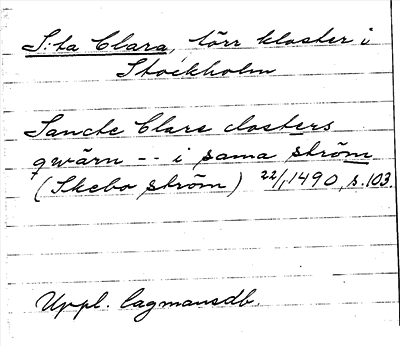 S:ta Clara, förr kloster i
Stockholm
Sancte Clare closters
qwärn -- i sama ström
(Skebo ström) 22/1, 1490, s. 103.
Uppl. lagmansdb.